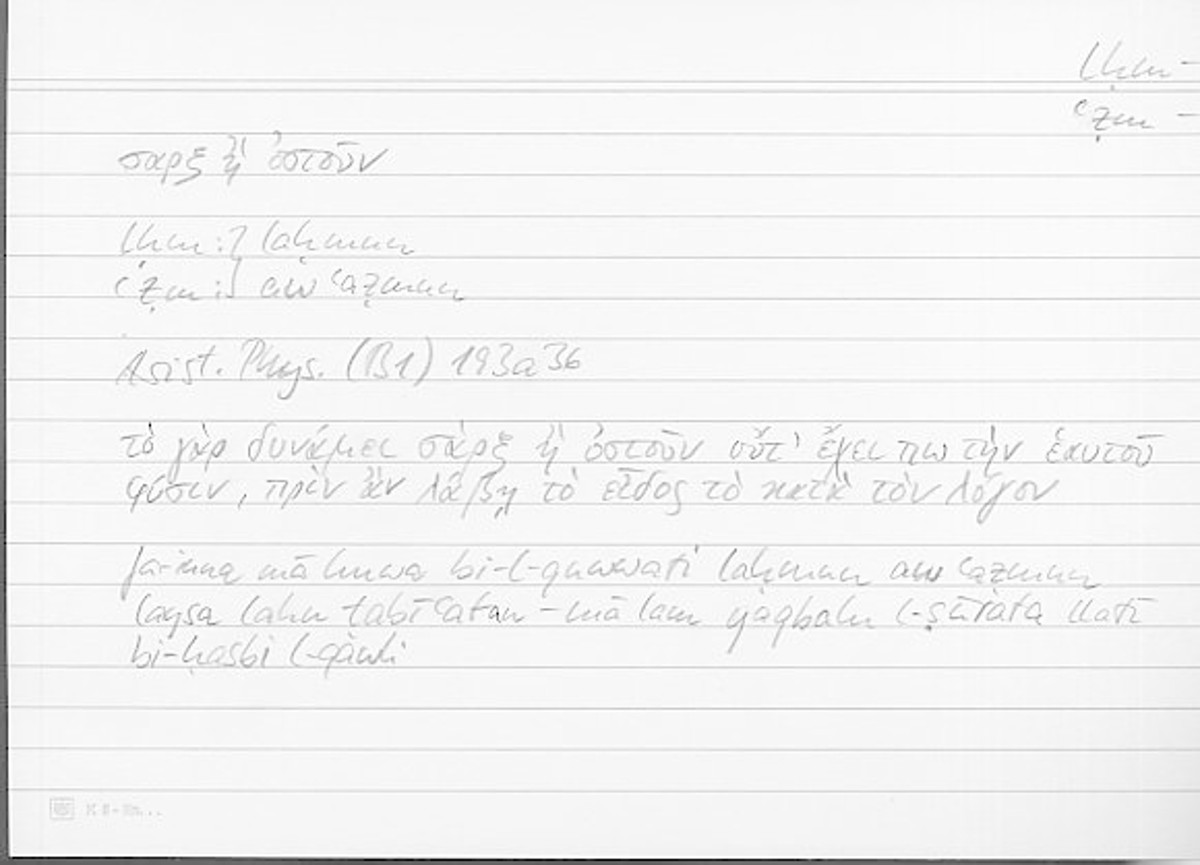 lḥm –
ʿẓm –
σαρξ ἢ ὀστοῦν
lḥm :} laḥmun
ʿẓm :} aw ʿaẓmun
Arist. Phys. (B1) 193a36
τὸ γὰρ δυνάμει σὰρξ ἢ ὀστοῦν οὔτ' ἔχει πω τὴν ἑαυτοῦ
φύσιν, πρὶν ἂν λάβῃ τὸ εἶδος τὸ κατὰ τὸν λόγον
fa-inna mā huwa bi-l-quwwati laḥmun aw ʿaẓmun
laysa lahu tabīʿatun - mā lam yaqbalu l-ṣūrata llatī
bi-ḥasbi l-qawli